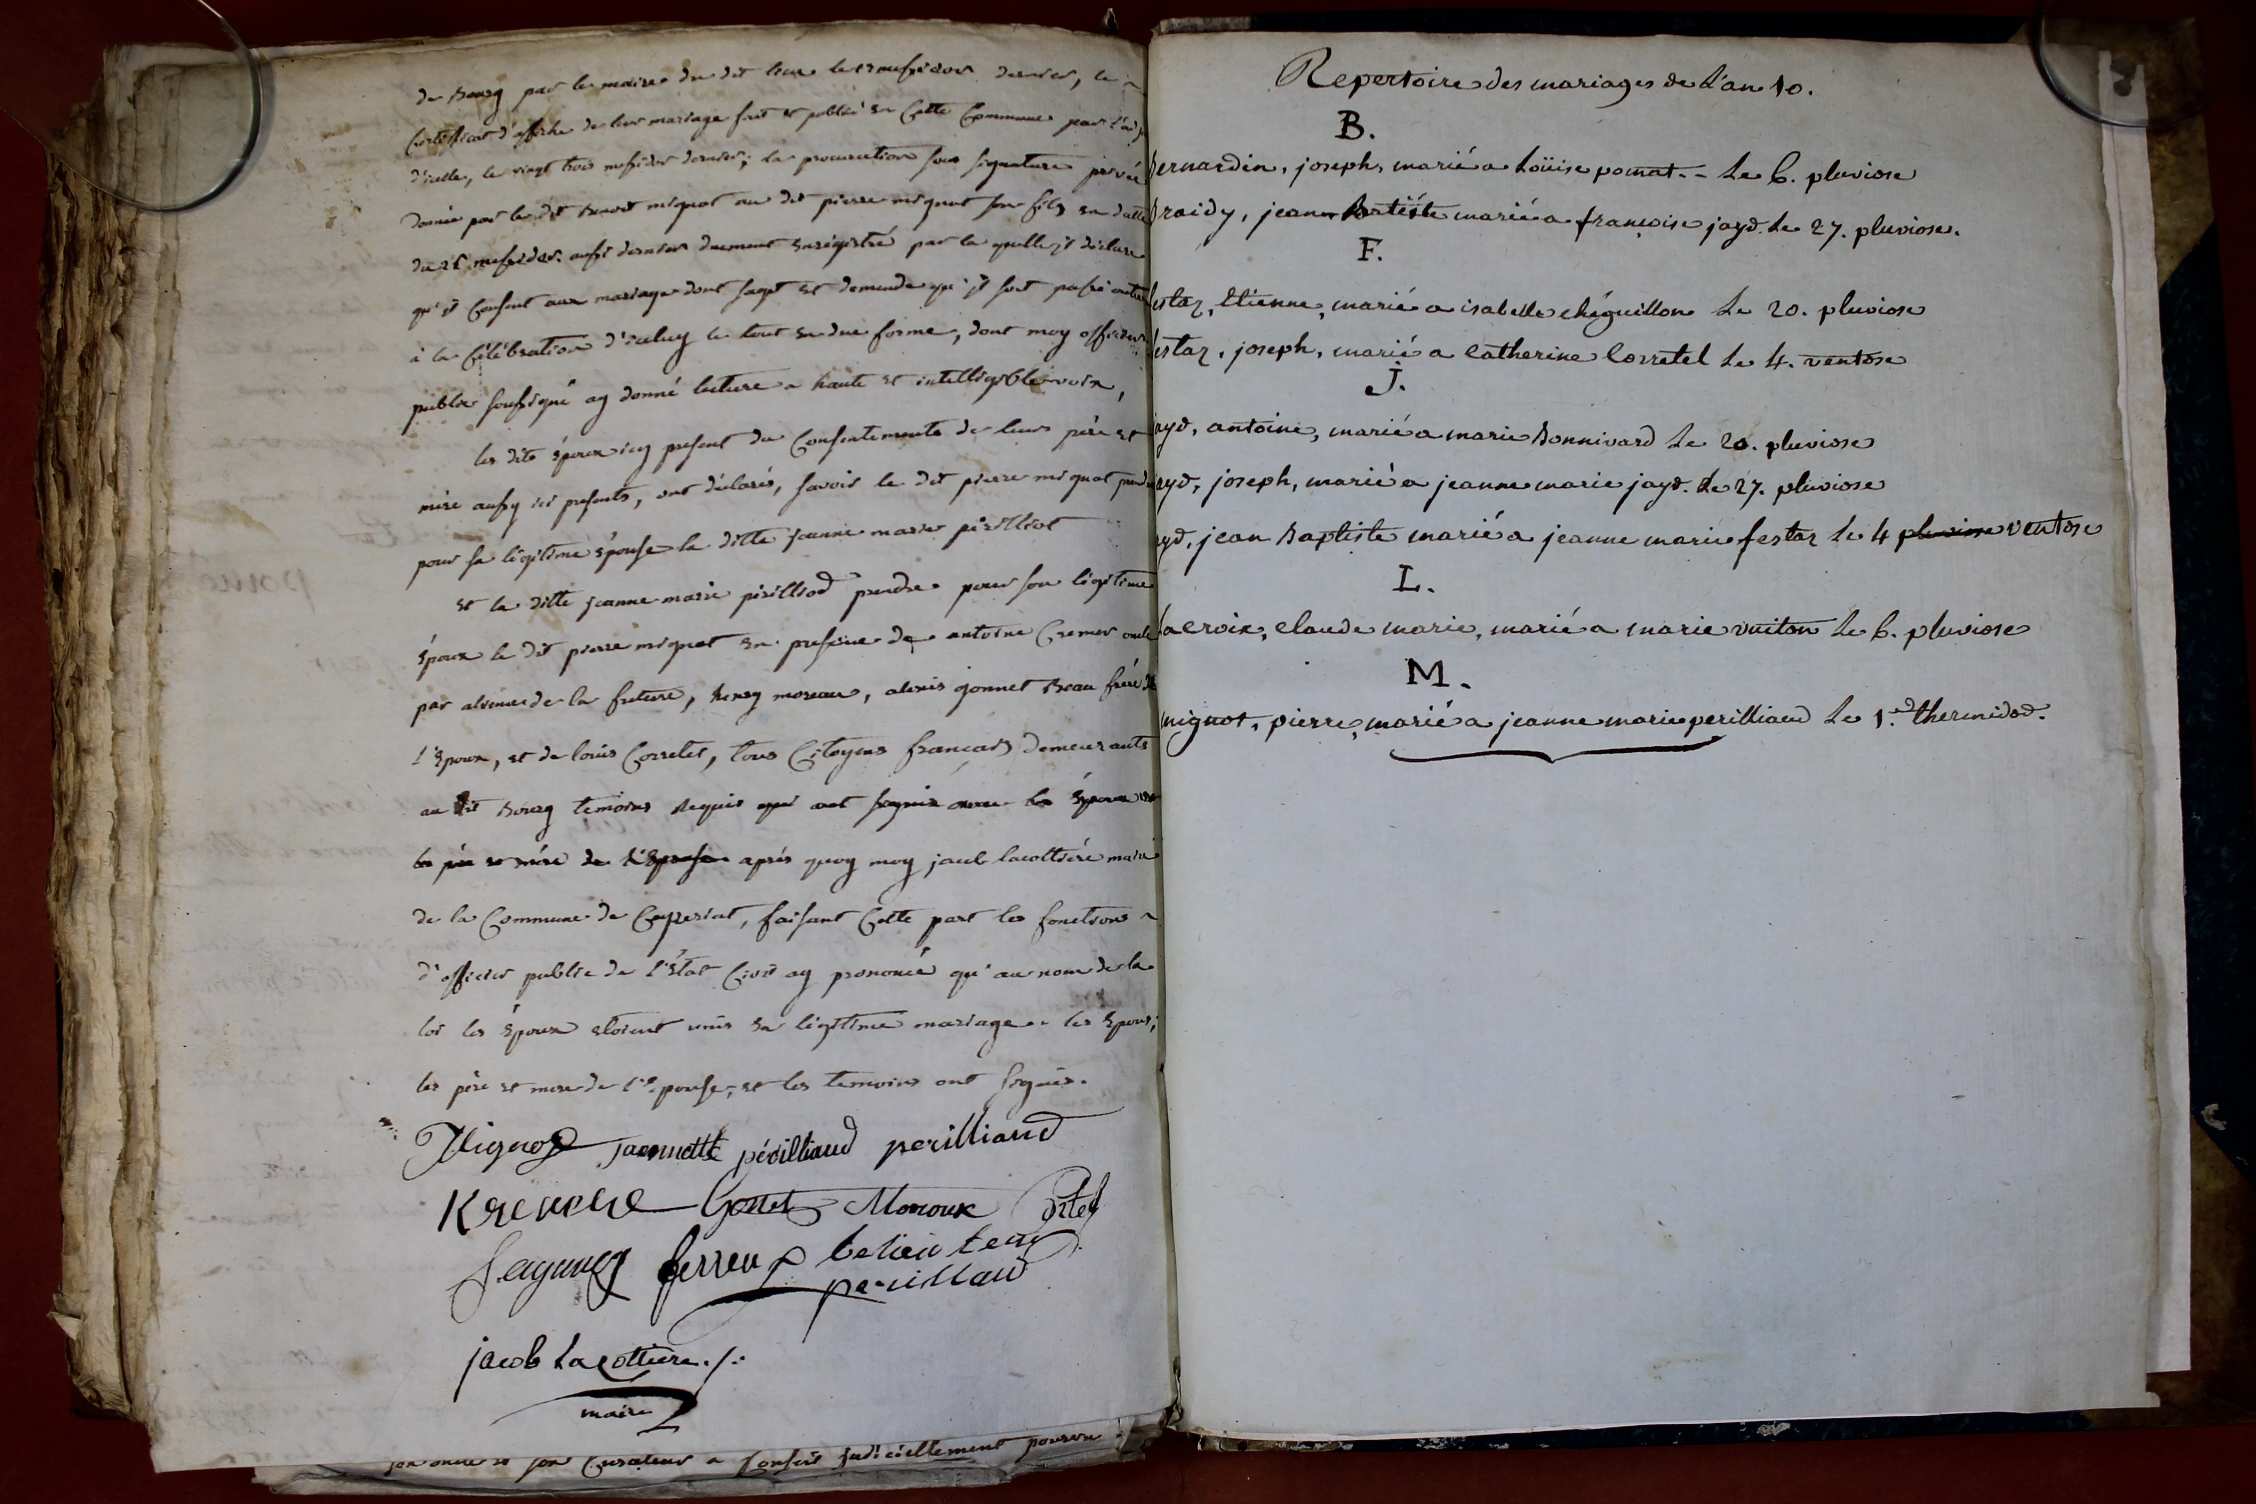 de Bourg par le maire du dit lieu le messidor dernier, le
Certifficat d'affiche de leur mariage fait et publié en Cette Commune par
d'icelle, le vingt trois messidor dernier; la procuration sous signature privée
donnée par le dit Benoit mignot au dit pierre mignot son fils en datte
du messidor aussi dernier duement enregistré par la quelle jl déclare
qu'il Consent aux mariage dont sagit et demande qu'jl soit passé outre
à la Célébration d'iceluy le tout en due forme, dont moy officier
public soussigné ay donné lecture a haute et intelligible voix,
les dits époux icy present du Consentements de leurs père et
mère aussy ici presents, ont déclarés, savoir le dit pierre mignot prendre
pour sa légitime épouse la ditte jeanne marie pirilliod
et la ditte jeanne marie pirilliod prendre pour son légitime
époux le dit pierre mignot en presence de antoine Cremer oncle
par aliance de la future, henry moreau, alexis gonnet Beau frère de
l'époux, et de louis Corretet, tous Citoyens français demeurants
au dit Bourg temoins requis qui ont signés avec les époux et
les père et mère de l'épouse après quoy moy jacob lacottière maire
de la Commune de Ceyzeriat, faisant Cette part les fonctions
d'officier public de l'état Civil ay prononcé qu'au nom de la
loi les époux etoient unis en légitime mariage. les époux,
les père et mere de l'epouse, et les temoins ont signés.
Mignot jaennette périlliaud perilliaud
Gonnet Moroux
perillaud
jacob Lacottiere
maire
son oncle et son Curateur a Conseil judiciellement pourvu
Repertoire des mariages de L'an 10.
B.
Bernardin, joseph, marié a Loüise pomat. - Le 6. pluviose
Braidy, jean Batiste marié a françoise jayd. Le 27. pluviose.
F.
festaz, Etienne, marié a isabelle chéguillon Le 20. pluviose
festaz, joseph, marié a Catherine Corretel Le 4. ventose
J.
jayd, antoine, marié a marie Bonnivard Le 20. pluviose
jayd, joseph, marié a jeanne marie jayd. Le 27. pluviose
jayd, jean Baptiste marié a jeanne marie festaz Le 4 pluviose ventose
L.
Lacroix, claude marie, marié a marie vuiton Le 6. pluviose
M.
mignot, pierre, marié a jeanne marie perilliaud Le 1.er thermidod.